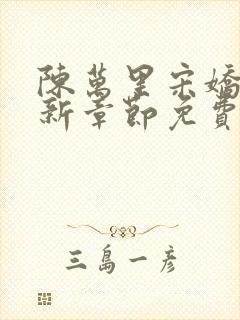 陳萬里宋嬌
新章節免費
三島一彥